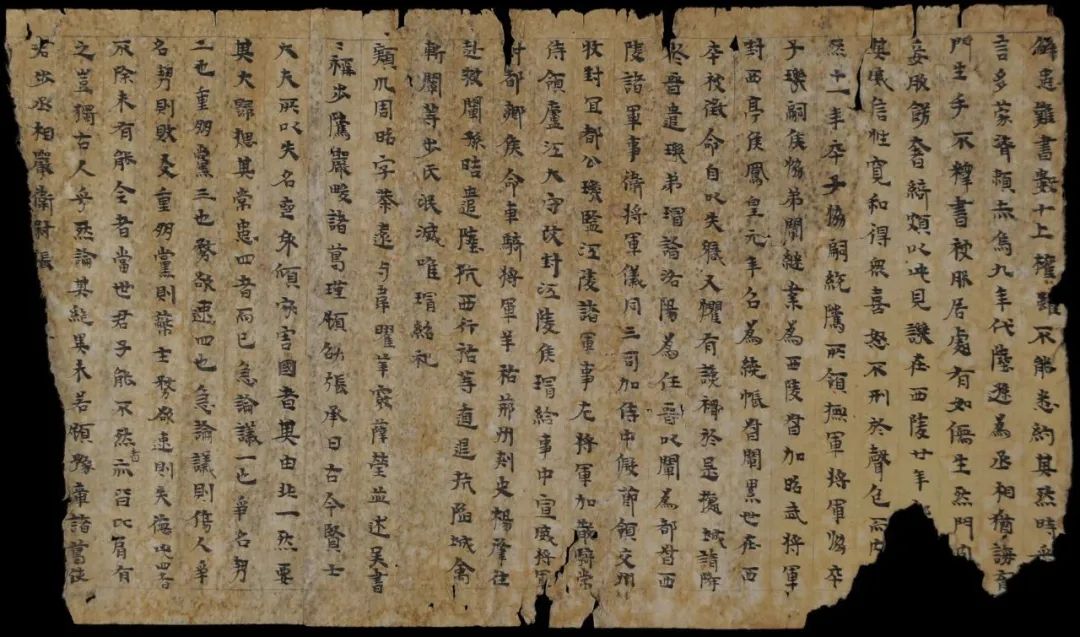 解患難書數十上權雖不能悉納其然時
言多蒙濟賴赤烏九年代陸遜為丞相猶誨育
門生手不釋書被服居處有如儒生然門内
妾服餝奢綺頗以此見譏在西陵廿年
其威信性寬和得衆喜怒不形於聲色而内
然十一年卒子協嗣統騭所領撫軍將軍協卒
子璣嗣侯協弟闡継業為西陵督加昭武將軍
封西亭侯鳳皇元年召為繞帳督闡累世在西
卒被徵命自以失職又懼有讒禍於是據城請降
於晉遣璣弟璿詣洛陽為任晉以闡為都督西
陵諸軍事衛將軍儀同三司加侍中假節領交州
牧封宜都公璣監江陵諸軍事左將軍加散騎常
侍領廬江太守改封江陵侯璿給事中宣威將軍
封都鄉侯命車騎將軍羊祜荊州刺史楊肇往
赴救闡孫晧遣陸抗西行祜等遁退抗陷城禽
斬闡等步氏泯滅唯璿紹祀
潁川周昭字恭遠与韋曜華覈薛瑩並述吳書
々稱步騭嚴畯諸葛瑾顧劭張承曰古今賢士
大夫所以失名喪身傾家害國者其由非一然要
其大歸揔其常患四者而已急論議一也爭名勢
二也重朋黨三也務欲速四也急論議則傷人爭
名勢則敗友重朋黨則蔽主務欲速則失德此四者
不除未有能全者當世君子能不然者亦皆比肩有
之豈獨古人乎然論其絕異未若顧豫章諸葛使
君步丞相嚴衛尉張